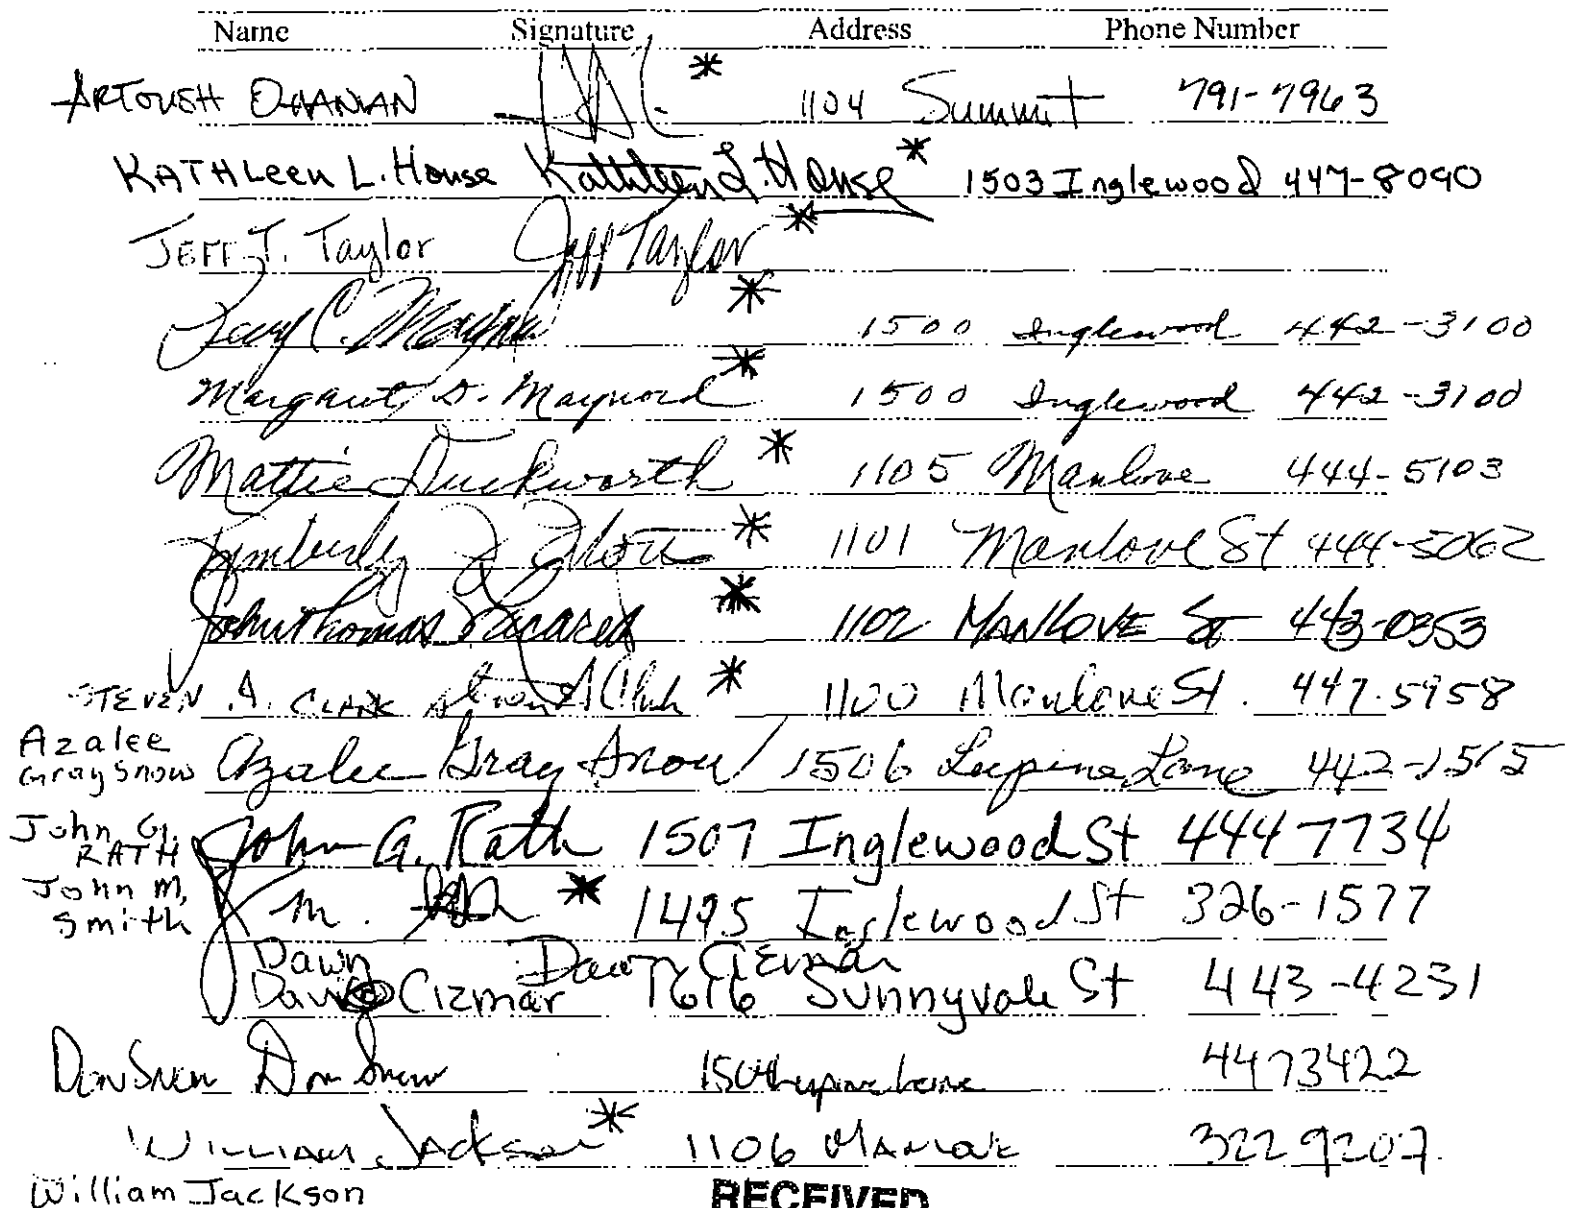 Name Signature Address Phone Number
ARTOUSH OHANIAN * 1104 Summit 791-7963
KATHLeen L. House Kathleen L. House * 1503 Inglewood 447-8090
JEFF T. Taylor Jeff Taylor *
C. Maynard * 1500 Inglewood 442-3100
Margaret D. Maynard * 1500 Inglewood 442-3100
Mattie Duckworth * 1105 Manlove 444-5103
Kimberly * 1101 Manlove St 444-5062
John Thomas * 1102 MANLOVE St 443-0353
STEVEN A. CLARK Steven A Clark * 1100 Manlove St. 447-5958
Azalee Gray Snow Azalee Gray Snow / 1506 Lupine Lane 442-1515
John G. RATH John G. Rath 1507 Inglewood St 444 7734
John M. Smith J. M. * 1495 Inglewood St 326-1577
Dawn Dawn Cizmar
Cizmar 1616 Sunnyvale St 443-4231
Don Snow Don Snow Lupine Lane 4473422
WILLIAM JACKSON * 1106 Manlove 322 9207
William Jackson
RECEIVED